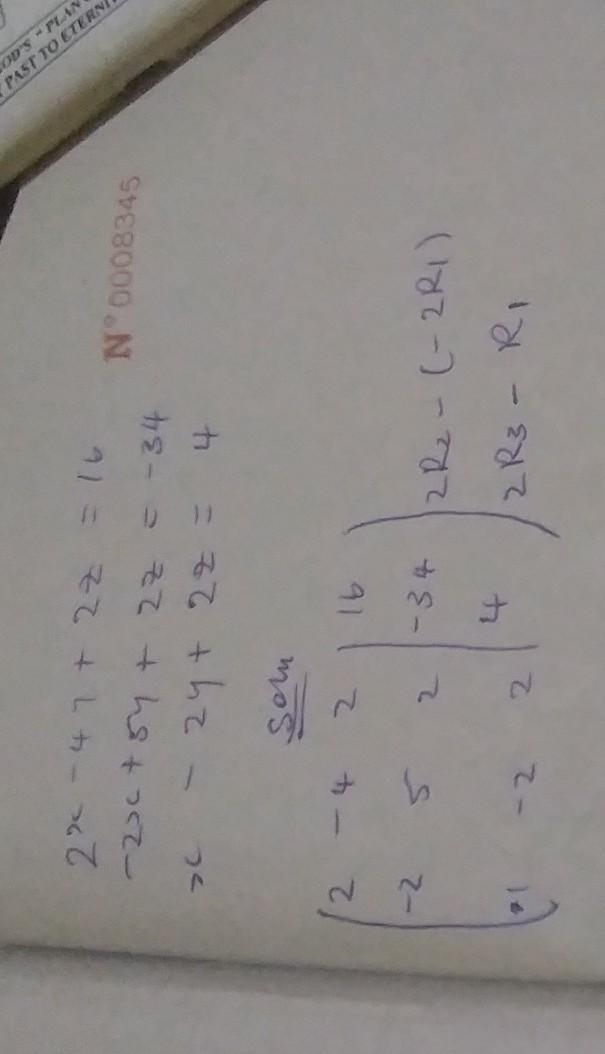 OD'S "PLAN
PAST TO ETERNI
N° 0008345
2x - 4y + 2z = 16
-2x + 5y + 2z = -34
x - 2y + 2z = 4
Soln
2 -4 2 | 16
-2 5 2 | -34 2R2 - (-2R1)
1 -2 2 | 4 2R3 - R1